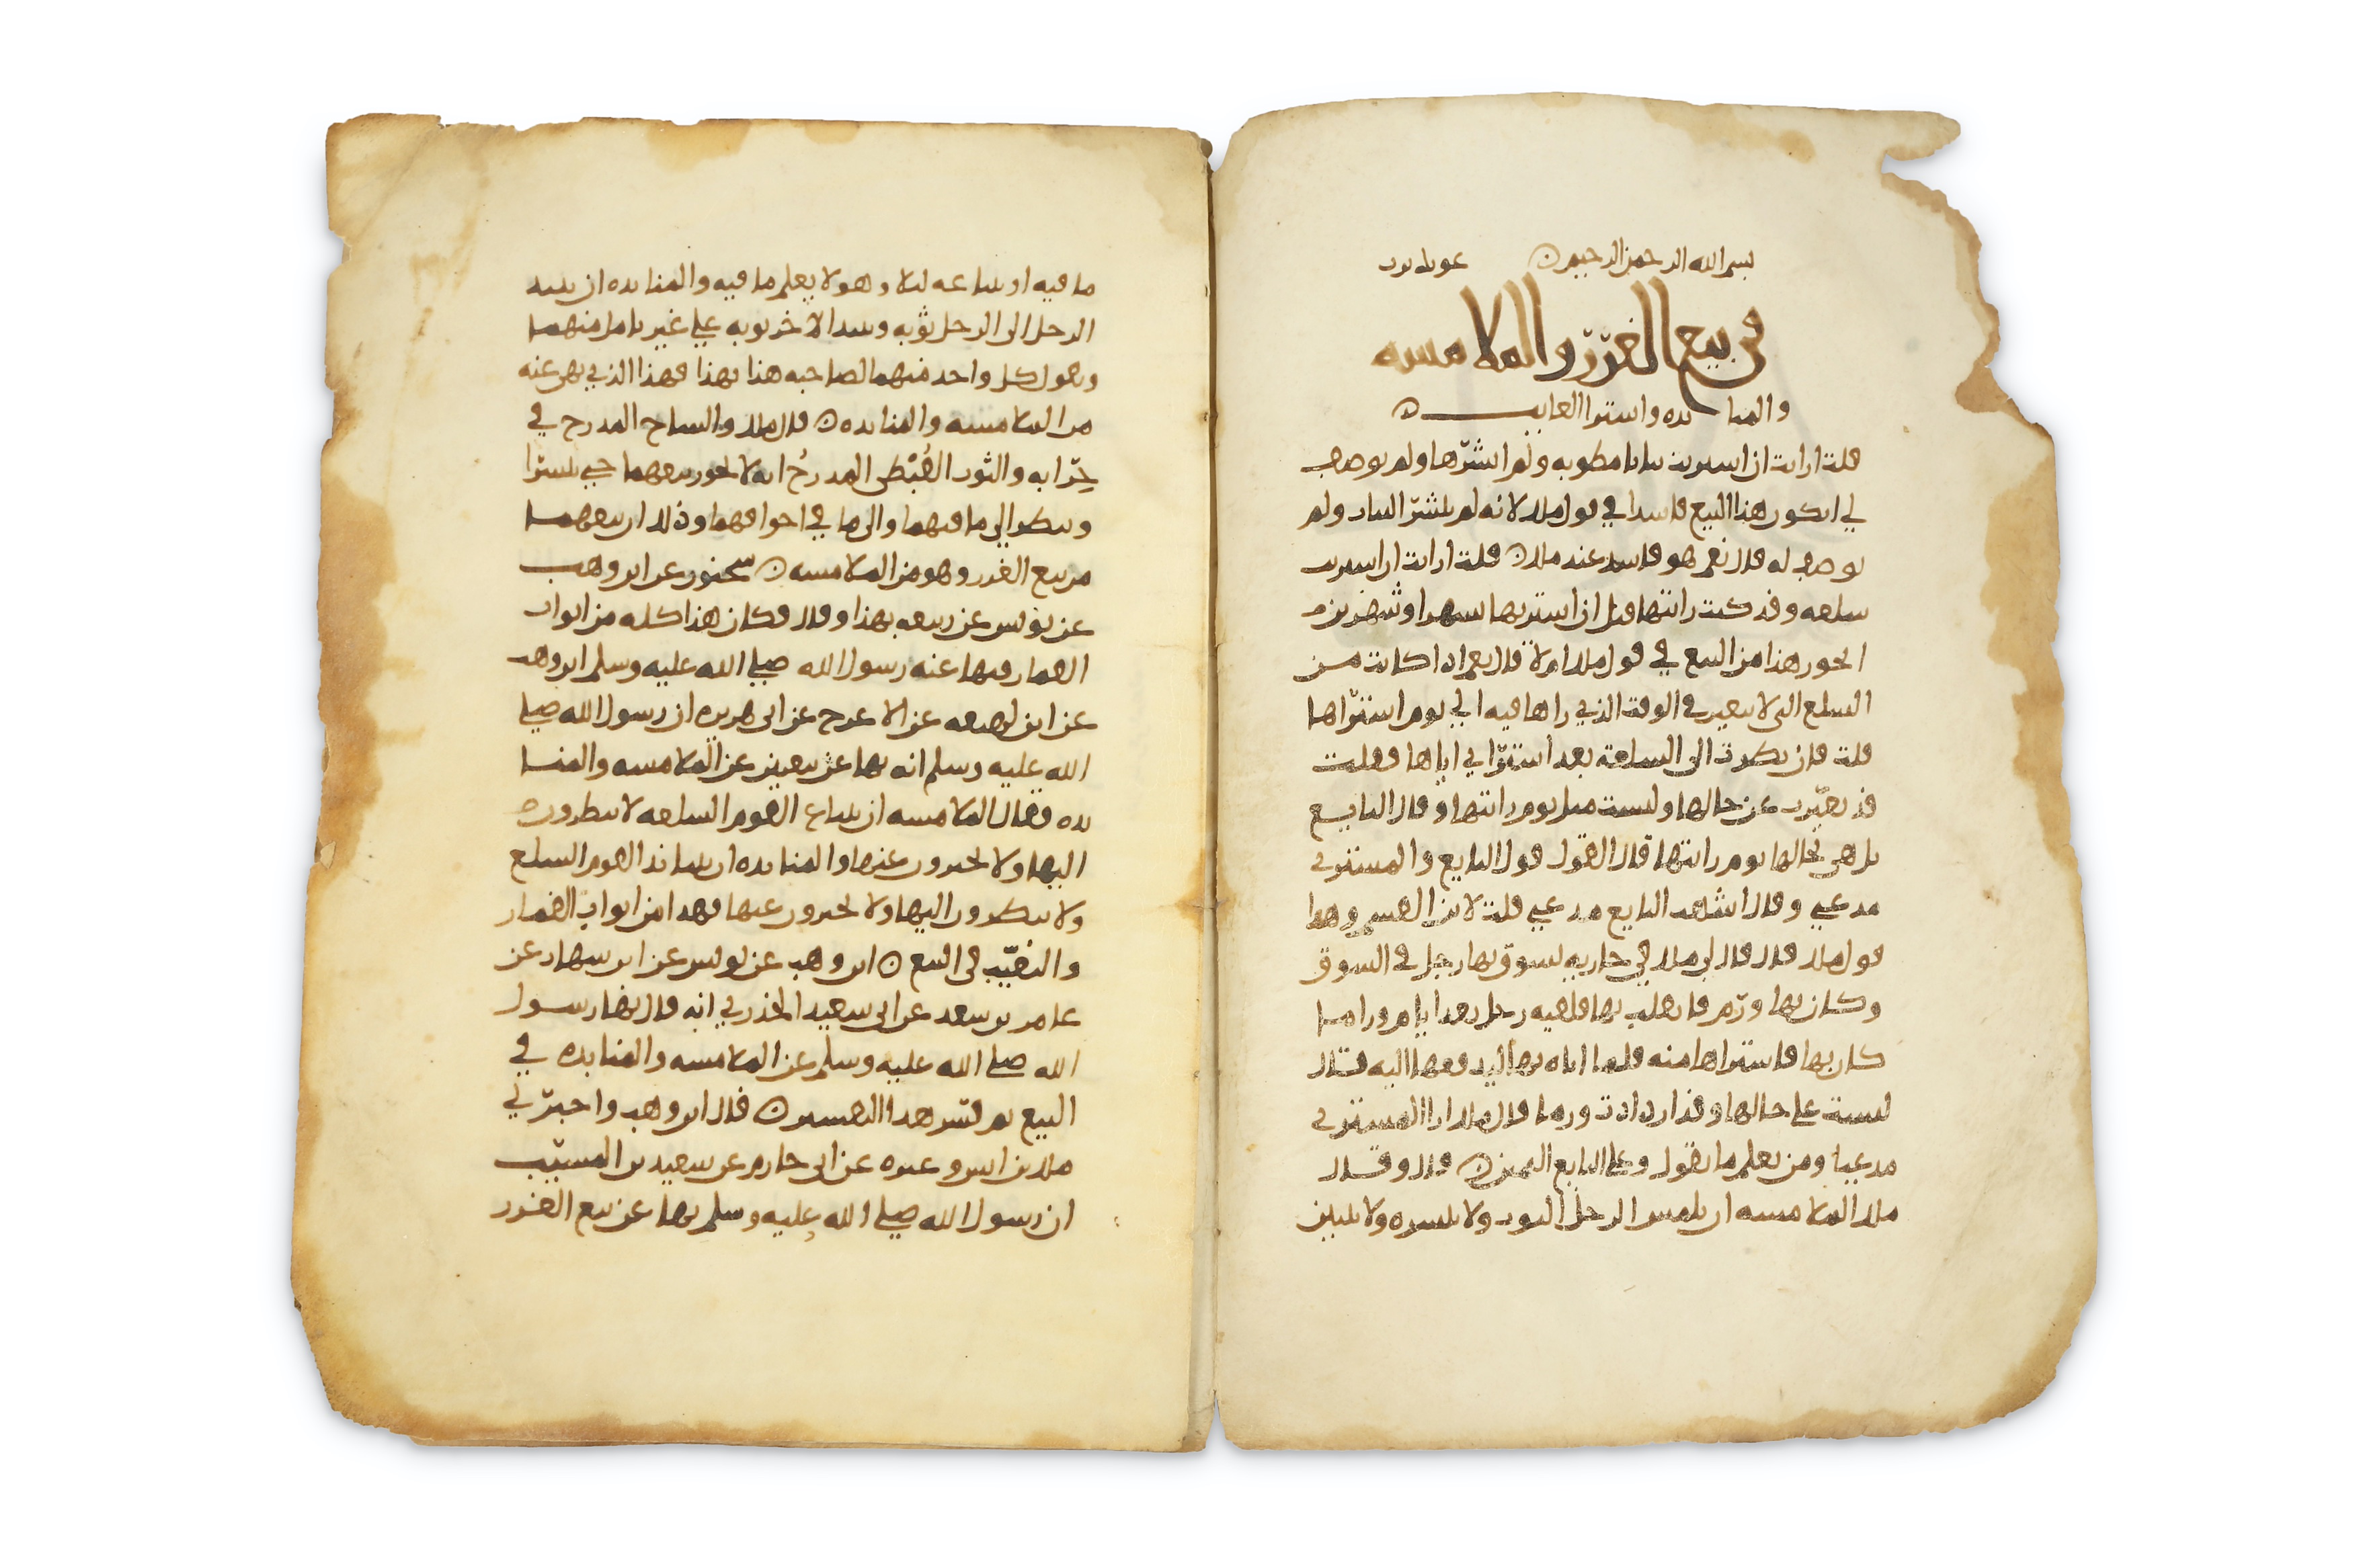 بسم الله الرحمن الرحيم ن عونك يرب
في بيع الغرر والملامسه
والمنابذه واشترا الغايب ن
قلت ارايت ان اشتريت ثيابا مطويه ولم انشرها ولم توصف
لي ايكون هذا البيع فاسدا في قول ملك لانه لم ينشر الثياب ولم
توصف له قال نعم هو فاسد عند ملك ن قلت ارايت ان اشتريت
سلعه وقد كنت رايتها قبل ان اشتريها بشهر او شهرين
ايجوز هذا من البيع في قول ملك ام لا قال نعم اذا كانت من
السلع التي لا تتغير في الوقت الذي راها فيه الي يوم اشتراها
قلت فان نظرت الى السلعة بعد اشترايي اياها فقلت
قد تغيرت عن حالها وليست مثل يوم رايتها وقال البايع
بل هي بحالها يوم رايتها قال القول قول البايع والمشتري
مدعي وقال اشهب البايع مدعي قلت لابن القسم وهذا
قول ملك قال قال لي ملك في جاريه تسوق بها رجل في السوق
وكان بها ورم فانقلب بها فلقيه رجل بعد ايام وراى ما
كان بها فاشتراها منه فلما اتاه بها ليدفعها اليه قال
ليست على حالها وقد ازدادت ورما قال ملك ارا المشتري
مدعيا ومن يعلم ما يقول وعلى البايع اليمين ن قال وقال
ملك الملامسه ان يلمس الرجل الثوب ولا ينشره ولا يتبين
ما فيه او يبتاعه ليلا وهو لا يعلم ما فيه والمنابذه ان ينبذ
الرجل الى الرجل ثوبه وينبذ الاخر ثوبه على غير تامل منهما
ويقول كل واحد منهما لصاحبه هذا بهذا فهذا الذي نهي عنه
من الملامسه والمنابذه ن قال ملك والساج المدرج في
جرابه والثوب القبطى المدرج انه لا يجوز بيعهما حتي ينشرا
وينظر الي ما فيهما والى ما في اجوافهما وذلك ان بيعهما
من بيع الغرر وهو من الملامسه ن سحنون عن ابن وهب
عن يونس عن ربيعه بهذا وقال فكان هذا كله من ابواب
القمار فنها عنه رسول الله صلى الله عليه وسلم ابن وهب
عن ابن لهيعه عن الاعرج عن ابى هريره ان رسول الله صلى
الله عليه وسلم انه نها عن بيعتين عن الملامسه والمنا
بذه فقال الملامسه ان يتبايع القوم السلعه لا ينظرون
اليها ولا يخبرون عنها والمنابذه ان يتنابذ القوم السلع
ولا ينظرون اليها ولا يخبرون عنها فهذا من ابواب القمار
والتغيب في البيع ن ابن وهب عن يونس عن ابن شهاب عن
عامر بن سعد عن ابى سعيد الخدري انه قال نها رسول
الله صلى الله عليه وسلم عن الملامسه والمنابذه في
البيع ثم فسر هذا التفسير ن قال ابن وهب واخبرني
ملك بن انس وغيره عن ابى حازم عن سعيد بن المسيب
ان رسول الله صلى الله عليه وسلم نها عن بيع الغرر